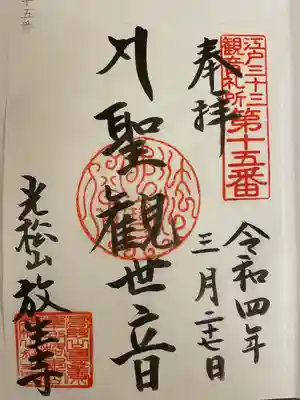 江戸三十三
観音札所
第十五番
奉拝
令和四年
三月二十七日
聖観世音
光松山放生寺